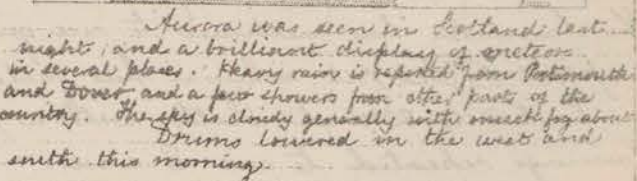 Aurora was seen in Scotland last
night, and a brilliant display of meteors
in several places. Heavy rain is reported from Portsmouth
and Dover and a few showers from other parts of the
country. The sky is cloudy generally with much fog about
Drums lowered in the west and
south this morning.